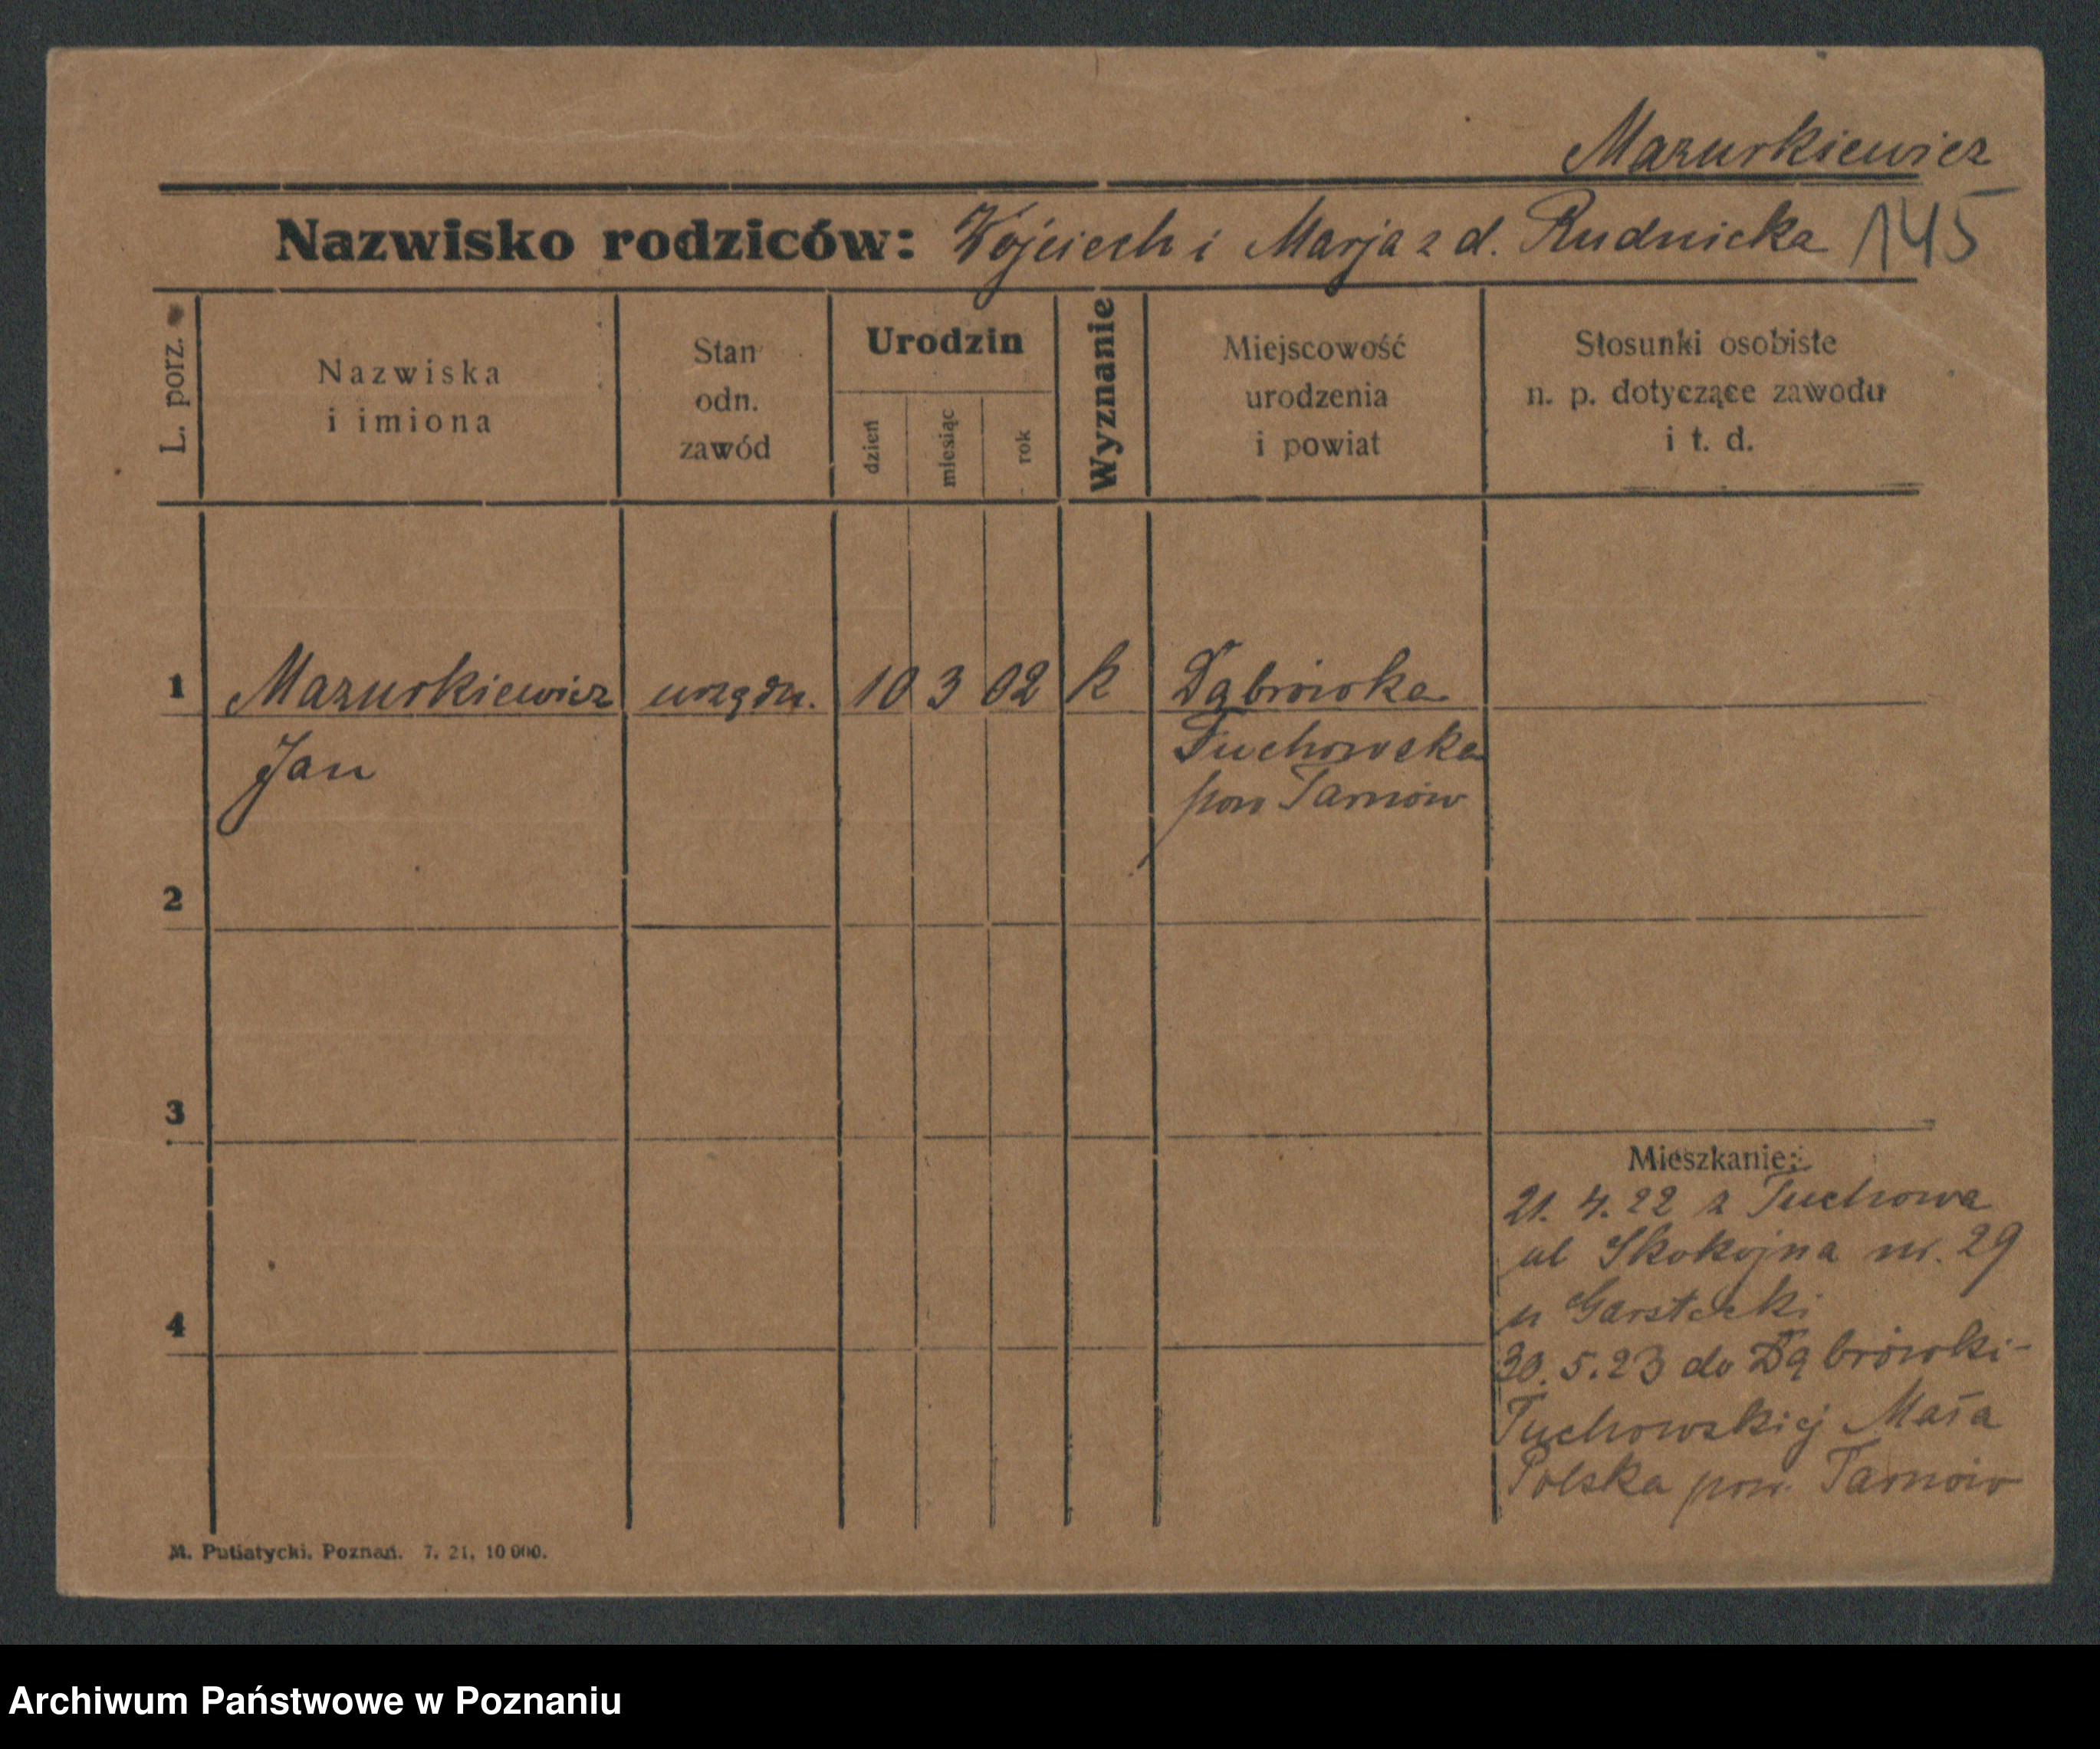 Mazurkiewicz
Nazwisko rodziców: Wojciech i Marja z d. Rudnicka 145
L. porz.
Nazwiska
i imiona
Stan
odn.
zawód
Urodzin
dzień
miesiąc
rok
Wyznanie
Miejscowość
urodzenia
i powiat
Stosunki osobiste
n. p. dotyczące zawodu
i t. d.
1 Mazurkiewicz urzędn. 10 3 02 k Dąbrówka
Jan
Tuchowska
pow Tarnów
2
3
4
Mieszkanie:
21. 4. 22 z Tuchowa
ul Spokojna nr. 29
u Garstecki
30. 5. 23 do Dąbrówki-
Tuchowskiej Mała
Polska pow. Tarnów
M. Putiatycki. Poznań. 7. 21, 10 000.
Archiwum Państwowe w Poznaniu